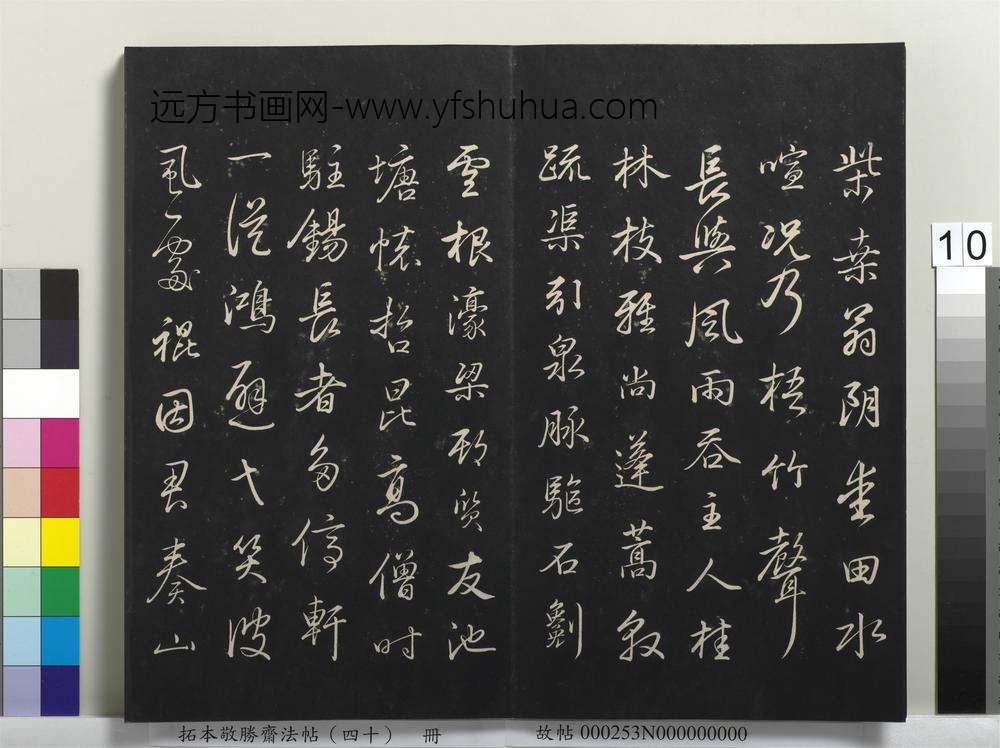 远方书画网-www.yfshuhua.com
柴桑翁田水
喧況乃梧竹聲
長與風雨吞主人桂
林枝雅尚蓬蒿叙
疏渠引泉脉驅石劖
雲根濠梁取質友池
塘懷哲昆高僧時
駐錫長者多停軒
一從鴻避弋笑彼
虱處褌因君奏山
10
拓本敬勝齋法帖（四十） 冊
故帖 000253N000000000